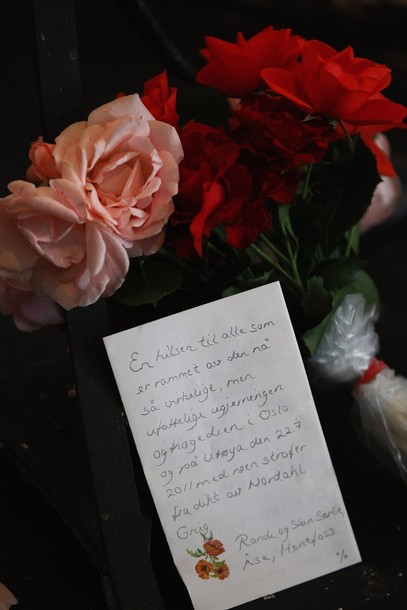 En hilsen til alle som
er rammet av den nå
så virkelige, men
ufattelige ugjerningen
og tragedien i Oslo
og på Utøya den 22.7.
2011 med noen strofer
fra dikt av Nordahl
Grieg
Randi og Stein
Åsa, Hønefoss
%